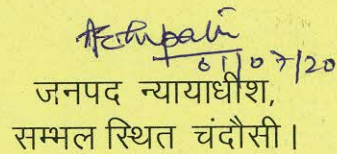 01/07/20
जनपद न्यायाधीश,
सम्भल स्थित चंदौसी।